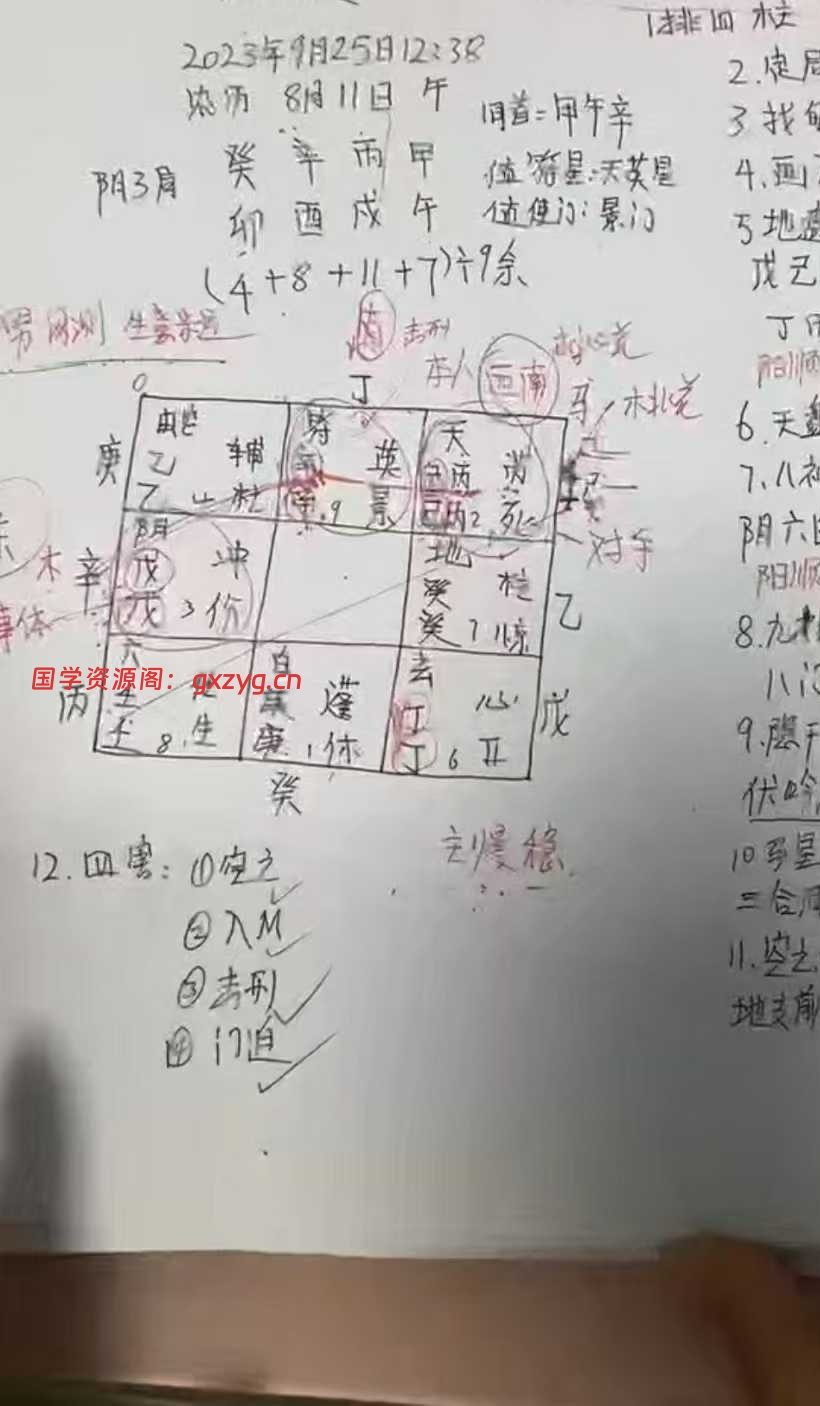 1排四柱
2023年9月25日12:38
农历 8月11日 午
2.定局
旬首=甲午辛
3.找
阴3局
癸 辛 丙 甲
值符星:天英星
4.画
卯 酉 戌 午
值使门:景门
5地盘
(4+8+11+7)÷9余
戊己
男 网测 生意
击刑
丁
本人 西南
马
阳顺
6.天盘
庚
乙 辅
乙 4 杜
英
9 景
天
丙 芮
己丙2 死
7.八神
对手
阴六
木 辛
阴
戊 冲
戊 3 伤
地
癸 柱
癸 7 惊
乙
阳顺
事体
8.九
八门
国学资源阁:gxzyg.cn
丙
六
壬
壬 8 生
白
蓬
庚 1 休
玄
丁 心
丁 6 开
戊
9.隐干
伏吟
癸
12.四害:①空亡
主慢 稳
10马星
三合
②入M
11.空亡
③击刑
地支
④门迫